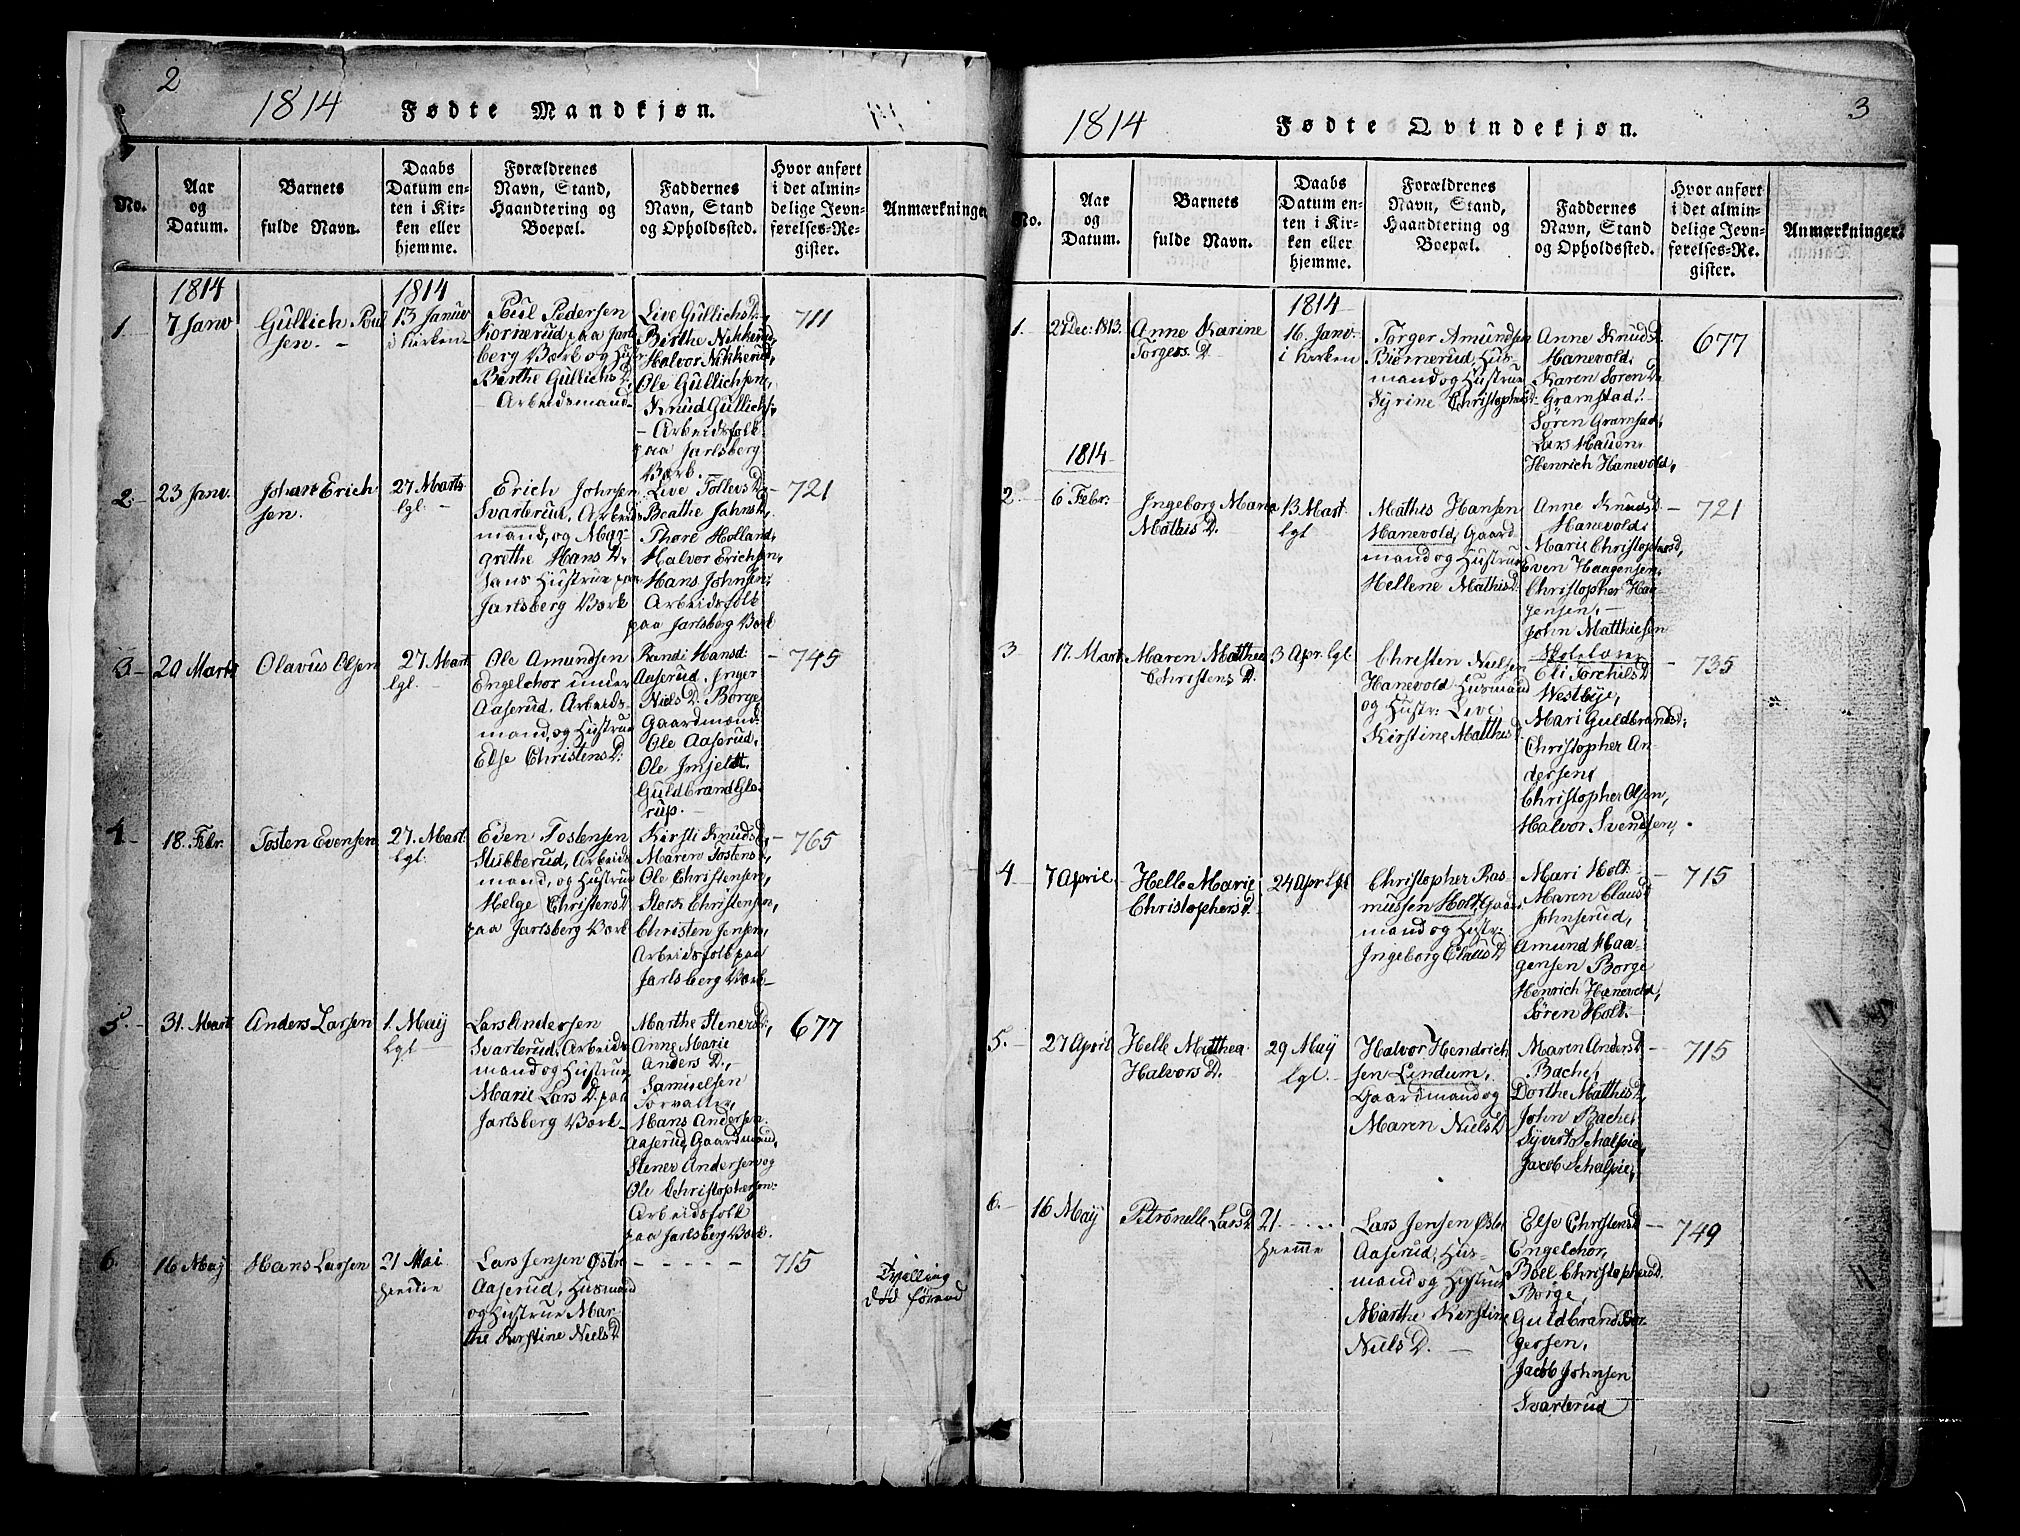 2
1814 Fødte Mandkjøn.
No.
Aar
og
Datum.
Barnets
fulde Navn.
Daabs
Datum en-
ten i Kir-
ken eller
hjemme.
Forældrenes
Navn, Stand,
Haandtering og
Boepæl.
Faddernes
Navn, Stand
og Opholdssted.
Hvor anført
i det almin-
delige Jevn-
førelses-Re-
gister.
Anmærkninger
1814
1.
7 Janv
Gullich Poul
sen.
1814
13 Januv
i kirken
Poul Pedersen
Kornerud paa Jarls
berg Værk og Hustr
Birthe Gullichs D.
Arbeidsmand
Live Gullichs D.
Birthe Nikkerud
Halvor Nikkerud,
Ole Gullichsen,
Knud Gullichs:
Arbeidsfolk
paa Jarlsberg
Værk.
711
2.
23 Janv.
Johan Erich
sen.
27 Marts
lgl.
Erich Johnsen
Svarterud, Arbeids
mand, og Mar-
grethe Hans D.
hans Hustrue paa
Jarlsberg Værk
Live Tollevs D.
Beathe Jahns D.
Thore Holland,
Halvor Erichsen,
Hans Johnsen,
Arbeidsfolk
paa Jarlsberg Værk
721
3
20 Marts
Olavus Olsen
27 Mart
lgl.
Ole Amundsen
Engelchor under
Aaserud, Arbeids-
mand, og Hustrue
Else Christens D.
Randi Hansd:
Aaserud, Inger
Niels D. Borge,
Gaardmænd:
Ole Aaserud,
Ole Imjeldt.
Guldbrand Glo-
rup.
745
4
18. Febr.
Tosten Evensen
27. Mart
lgl.
Even Tostensen
Stubberud, Arbeids
mand, og Hustrue
Helge Christens D
paa Jarlsberg Værk
Kirsti Knuds D,
Maren Tostens D,
Ole Christensen,
Christensen,
Christen Jensen,
Arbeidsfolk paa
Jarlsberg Værk
765
5.
31. Mart
Anders Larsen
1. Maÿ
lgl
Lars Andersen
Svarterud, Arbeids
mand og Hustrue
Marie Lars D. paa
Jarlsberg Værk
Marthe Steners D,
Anne Marie
Anders D.,
Samuelsen
Forvalter,
Hans Andersen
Aaserud, Gaardmand,
Stener Andersen og
Ole Christophersen.
Arbeidsfolk
paa Jarlsberg Værk.
677
6.
16 Maÿ
Hans Larsen
21 Mai
hiemme
Lars Jensen Østre
Aaserud, Husmand
og Hustrue Mar-
the Kirstine Niels D
715
Tvilling
død
3
1814 Fødte Qvindekjøn.
No.
Aar
og
Datum.
Barnets
fulde Navn.
Daabs
Datum en-
ten i Kir-
ken eller
hjemme.
Forældrenes
Navn, Stand,
Haandtering og
Boepæl.
Faddernes
Navn, Stand
og Opholdssted.
Hvor anført
i det almin-
delige Jevn-
førelses-Re-
gister.
Anmærkninger.
1.
Dec: 1813.
Anne Karine
Torgers. D.
1814
16 Janv.
i kirken
Torger Amundsen
Biørnerud, Hus-
mand og Hustrue
Syrine Christophers D
Anne Knuds D.
Hanevold.
Karen Søren D.
Gramstad.
Søren Gramstad,
Lars Hauen,
Henrich Hanevold,
677
1814
2.
6 Febr.
Ingeborg Maria
Mathis D.
13 Mart.
lgl
Mathis Hansen
Hanevold, Gaard
mand og Hustrue
Hellene Mathis D.
Anne Knuds D.
Hanevold:
Marie Christophersd,
Even Haagensen,
Christopher Haa-
gensen,
John Matthiesen
Skoleløser
721
3
17 Mart.
Maren Mathea
Christens D.
3 Apr. lgl.
Christen Nielsen
Hanevold, Husmand
og Hustr: Live
Kirstine Matthis D.
Eli Torchils D
Westbÿe,
Mari Guldbrands D:
Christopher An-
dersen,
Christopher Olsen,
Halvor Svendsen,
735
4
7 April.
Helle Marie
Christophers D.
24 Apr lgl
Christopher Ras-
mussen Holt, Gaard
mand og Hustr:
Ingeborg Claus D
Mari Holt:
Maren Claus D
Johnserud,
Amund Haa-
gensen Borge
Henrich Hanevold,
Søren Holt.
715
5.
27 April
Helle Matthea
Halvors D.
29 Maÿ
lgl.
Halvor Hendrich
sen Lindum,
Gaardmand og
Maren Niels D
Maren Anders D
Bache,
Dorthe Matthis D,
John Bache,
Syvert Schalpie,
Jacob Schalpie,
715
6.
16 Maÿ
Petronelle Lars D.
21.
hiemme
Lars Jensen Østre
Aaserud, Hus-
mand og Hustrue
Marthe Kirstine
Niels D.
Else Christens D
Engelchor,
Boel Christophersd.
Borge,
Guldbrand Bør-
gersen,
Jacob Johnsen
Svarterud
749